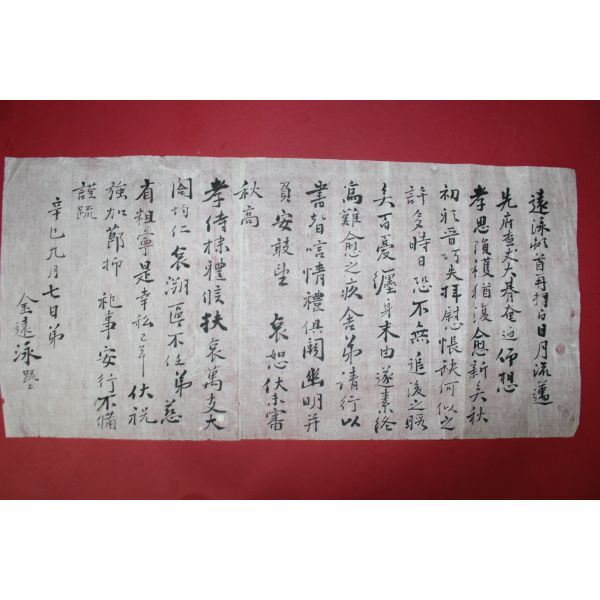 遠泳頓首再拜白日月流邁
先府查丈大朞奄迫仰想
孝思隕穫猶復愈新矣秋
初聆音巧失拜慰悵缺何似之
許多時日恐不無追後之
矣百憂纏身末由遂素終
爲難愈之疾舍弟請行以
書替唁情禮俱闕幽明幷
負安敢望 哀恕伏未審
秋高
孝侍棣體候扶哀萬支大
閤均仁哀溯區區不任弟慈
省粗寧是幸私已耳伏祝
強加節抑 祀事安行不備
謹疏
辛巳九月七日弟
金遠泳疏上